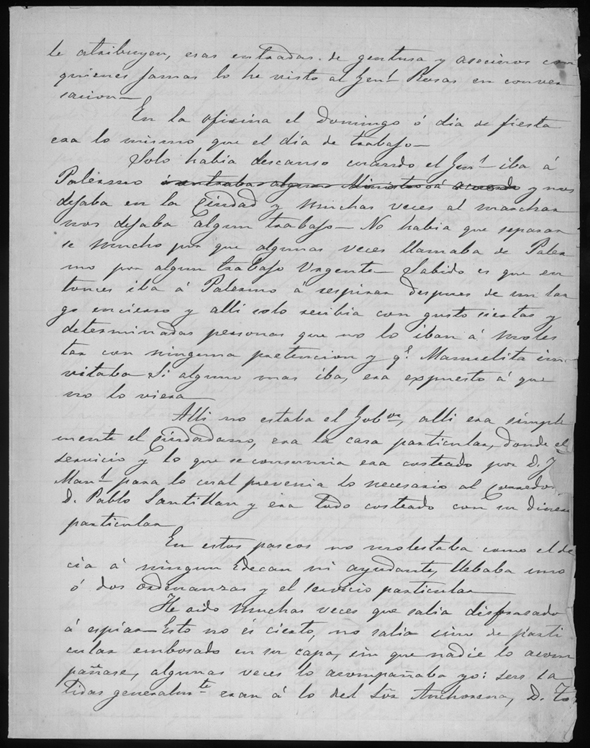 le atribuyen, esas entradas de gentusa y asecinos con
quienes jamas lo he visto al Genl. Rosas en conver
sacion—
En la oficina el Domingo ó dia de fiesta
era lo mismo que el dia de trabajo—
Solo habia descanso cuando el Genl. iba á
Palermo ó entraba algun Ministro á acuerdo y nos
dejaba en la Ciudad y muchas veces al marchar
nos dejaba algun trabajo— No habia que separar
se mucho por que algunas veces llamaba de Paler
mo por algun trabajo Urgente— Sabido es que en
tonces iba á Palermo á respirar despues de un lar
go encierro y alli solo recibia con gusto ciertas y
determinadas personas que no lo iban á moles
tar con ninguna pretencion y qe. Manuelita in
vitaba Si alguno mas iba, era expuesto á que
no lo viera—
Alli no estaba el Gobor, alli era simple
mente el Ciudadano, era la casa particular, donde el
servicio y lo que se consumia era costeado por D. J.
Manl. para lo cual prevenia lo necesario al Corredor
D. Pablo Santillan y era todo costeado con su dinero
particular
En estos paseos no molestaba como el de
cia á ningun Edecan ni ayudante, llebaba uno
ó dos ordenanzas y el servicio particular—
He oido muchas veces que salia disfrasado
á espiar— Esto no es cierto, no salia sino de parti
cular embosado en su capa, sin que nadie lo acom
pañase, algunas veces lo acompañaba yo: sus sa
lidas generalmte. eran á lo del Sor Anchorena, D. To